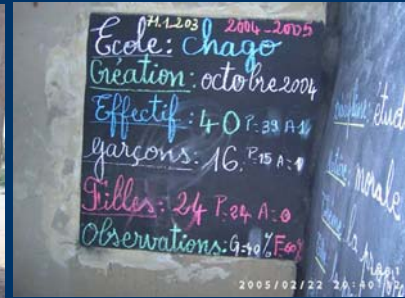 71.1.203 2004-2005
École: Chago
Création: octobre 2004
Effectif: 40 P=39 A=1
garçons: 16. P=15 A=1
Filles: 24 P=24 A=0
Observations: G=40% F=60%
étud
morale
la
2005/02/22